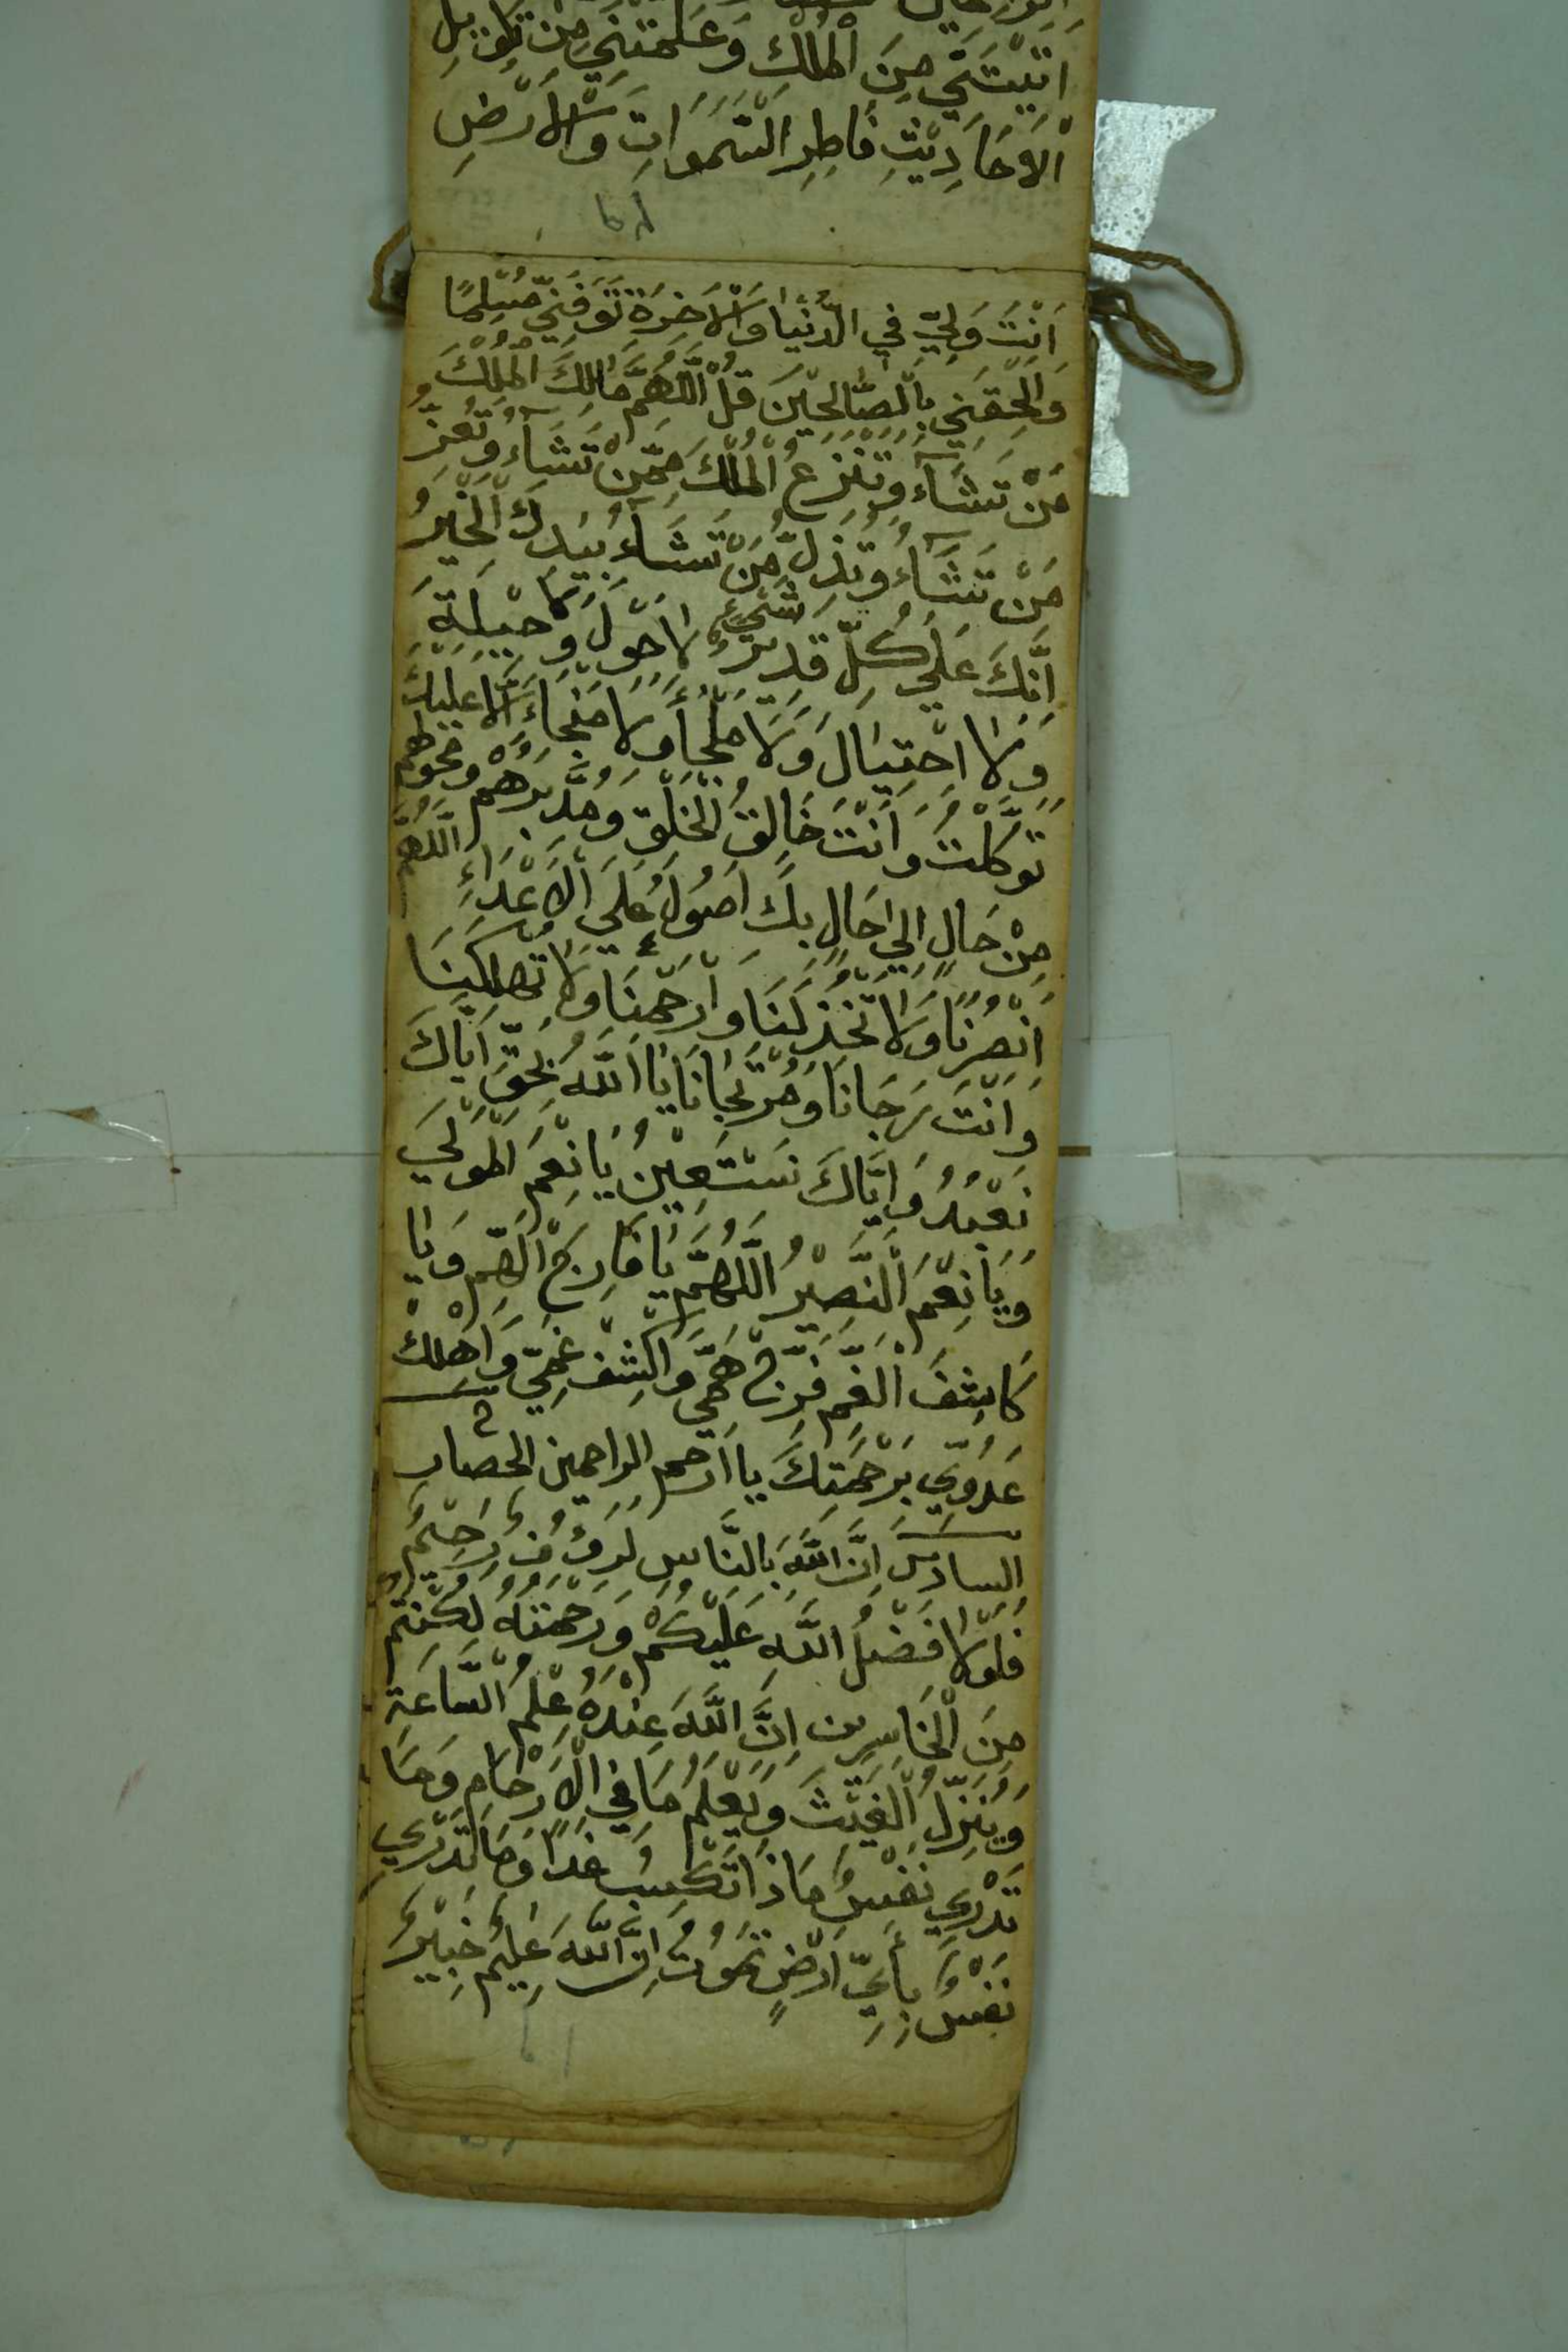 اتَيْتَنِي مِنَ الْمُلْكِ وَعَلَّمْتَنِي مِنْ تَاْوِيلِ
الْاَحَادِيْثِ فَاطِرِ السَّمَوَاتِ وَالْاَرْضِ
اَنْتَ وَلِيّ فِي الدُّنْيَا وَالْاَخِرَةِ تَوَفَّنِي مُسْلِمًا
وَاَلْحِقْنِي بِالصَّالِحِيْنَ قُلْ اللَّهُمَّ مَالِكَ الْمُلْكِ
مَنْ تَشَآءُ وَتَنْزِعُ الْمُلْكَ مِمَّنْ تَشَآءُ وَتُعِزُّ
مَنْ تَشَآءُ وَتُذِلُّ مَنْ تَشَآءُ بِيَدِكَ الْخَيْرُ
اِنَّكَ عَلَي كُلِّ شَيْءٍ قَدِيْرٌ لَا حَوْلَ وَلَا حِيْلَةَ
وَلَا احْتِيَالَ وَلَا مَلْجَأَ وَلَا مَنْجَاءَ اِلَّا عَلَيْكَ
تَوَكَّلْتُ وَاَنْتَ خَالِقُ الْخَلْقِ وَمُدَبِّرُهُمْ وَمُحَوِّلُهُمْ
مِنْ حَالٍ اِلَي حَالٍ بِكَ اَصُوْلُ عَلَي الْاَعْدَاءِ اللَّهُمَّ
اَنْصُرْنَا وَلَا تَخْذُلْنَا وَارْحَمْنَا وَلَا تُهْلِكْنَا
وَاَنْتَ رَجَانَا وَمُرْتَجَانَا يَا اَللَّهُ بِحَقِّ اِيَّاكَ
نَعْبُدُ وَاِيَّاكَ نَسْتَعِيْنُ يَا نِعْمَ الْمَوْلَي
وَيَا نِعْمَ النَّصِيْرُ اللَّهُمَّ يَا فَارِجَ الْهَمِّ وَيَا
كَاشِفَ الْغَمِّ فَرِّجْ هَمِّي وَاكْشِفْ غَمِّي وَاَهْلِكْ
عَدُوِّي بِرَحْمَتِكَ يا اَرحم الراحمين الحصار
السادس اِنَّ اللَّهَ بِالنَّاسِ لَرَؤُفٌ رَحِيْمٌ
فَلَوْلَا فَضْلُ اللَّهِ عَلَيْكُمْ وَرَحْمَتُهُ لَكُنْتُمْ
مِنَ الْخَاسِرِين اِنَّ اللَّهَ عِنْدَهُ عِلْمُ السَّاعَةِ
وَيُنَزِّلُ الْغَيْثَ وَيَعْلَمُ مَا فِي الْاَرْحَامِ وَمَا
تَدْرِي نَفْسٌ مَاذَا تَكْسِبُ غَدًا وَمَا تَدْرِي
نَفْسٌ بِاَيِّ اَرْضٍ تَمُوْتُ اِنَّ اللَّهَ عَلِيْمٌ خَبِيْرٌ